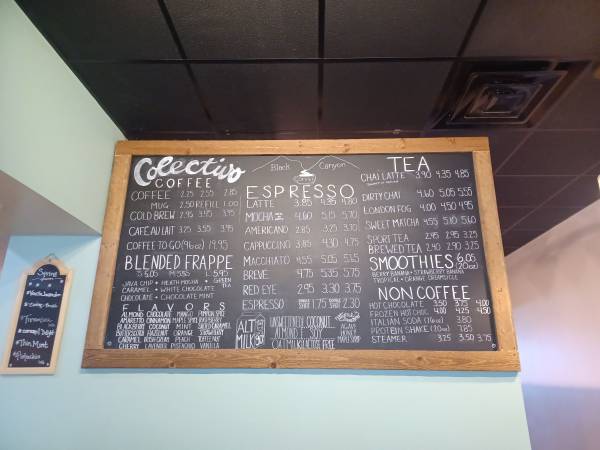 Colectivo
COFFEE
COFFEE 2.25 2.55 2.85
MUG 2.50 REFILL 1.00
COLD BREW 2.95 3.45 3.95
CAFÉ AU LAIT 3.25 3.55 3.95
COFFEE TO GO (96oz) 19.95
BLENDED FRAPPE
S 5.05 M 5.55 L 5.95
JAVA CHIP • HEATH MOCHA • GREEN TEA
CARAMEL • WHITE CHOCOLATE
CHOCOLATE • CHOCOLATE MINT
FLAVORS
ALMOND CHOCOLATE MANGO PUMPKIN SPICE
AMARETTO CINNAMON MAPLE SPICE RASPBERRY
BLACKBERRY COCONUT MINT SALTED CARAMEL
BUTTERSCOTCH HAZELNUT ORANGE STRAWBERRY
CARAMEL IRISH CREAM PEACH TOFFEE NUT
CHERRY LAVENDER PISTACHIO VANILLA
Black Canyon
ESPRESSO
LATTE 3.85 4.35 4.80
MOCHA 4.60 5.15 5.70
AMERICANO 2.85 3.25 3.70
CAPPUCCINO 3.85 4.30 4.75
MACCHIATO 4.55 5.05 5.65
BREVE 4.75 5.35 5.75
RED EYE 2.95 3.30 3.75
ESPRESSO 1.75 2.30
ALT MILK 90¢
UNSWEETENED COCONUT
ALMOND SOY
OAT MILK
AGAVE
HONEY
MAPLE SYRUP
TEA
CHAI LATTE 3.90 4.35 4.85
DIRTY CHAI 4.60 5.05 5.55
LONDON FOG 4.00 4.50 4.95
SWEET MATCHA 4.55 5.10 5.60
SPORT TEA 2.45 2.95 3.25
BREWED TEA 2.40 2.90 3.25
SMOOTHIES 6.05
(20oz)
BERRY BANANA • STRAWBERRY BANANA
TROPICAL • ORANGE DREAMSICLE
NON COFFEE
HOT CHOCOLATE 3.50 3.75 4.00
FROZEN HOT CHOC 4.00 4.25 4.50
ITALIAN SODA (16oz) 3.80
PROTEIN SHAKE (20oz) 7.85
STEAMER 3.25 3.50 3.75
Spring
Thin Mint
Pistachio